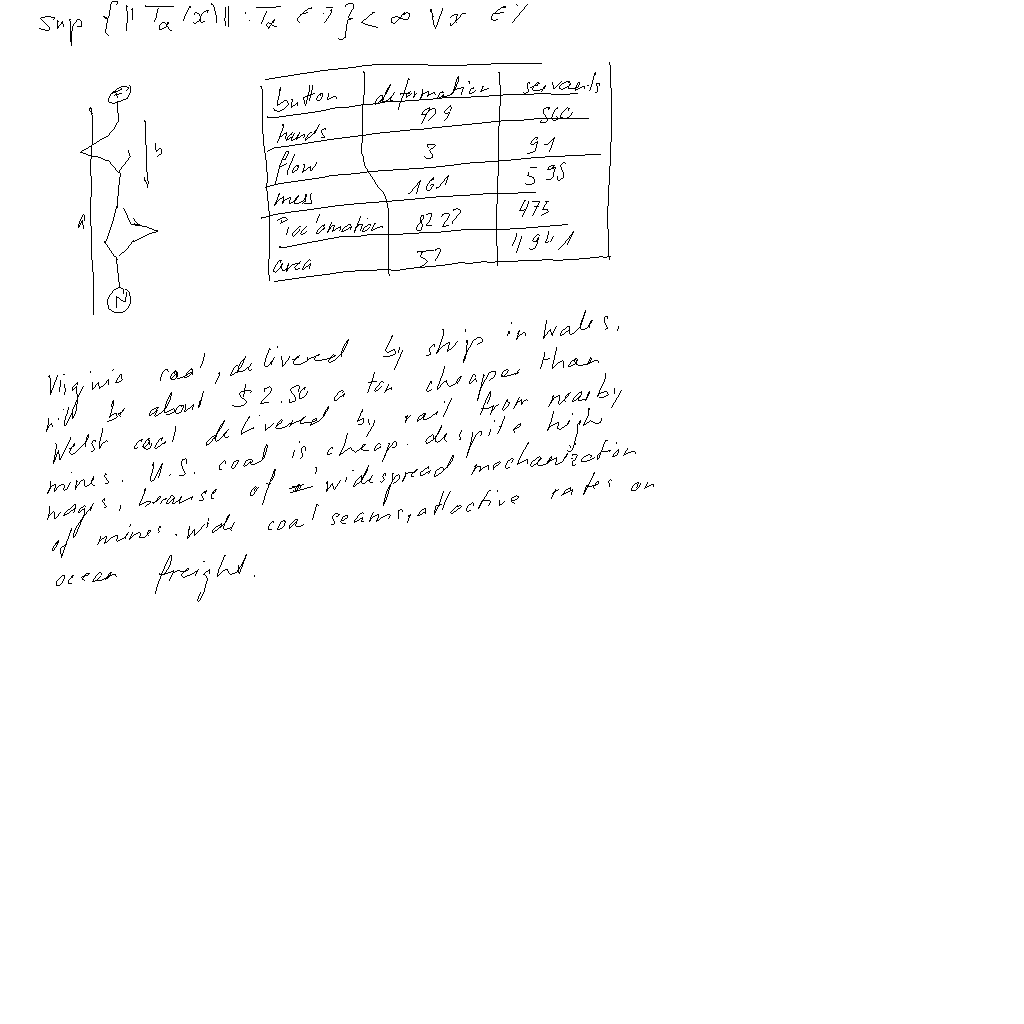 sup { || T_α (x) || : T_α ∈ } < ∞ ∀ x ∈
a
b
N
button deformation servants
hands 929 560
flow 3 91
mess 161 595
Proclamation 8222 475
area 52 4941
Virginia coal, delivered by ship in Wales,
will be about $2.50 a ton cheaper than
Welsh coal delivered by rail from nearby
mines. U.S. coal is cheap. despite high
wages, because of widespread mechanization
of mines. wide coal seams, attractive rates on
ocean freight.